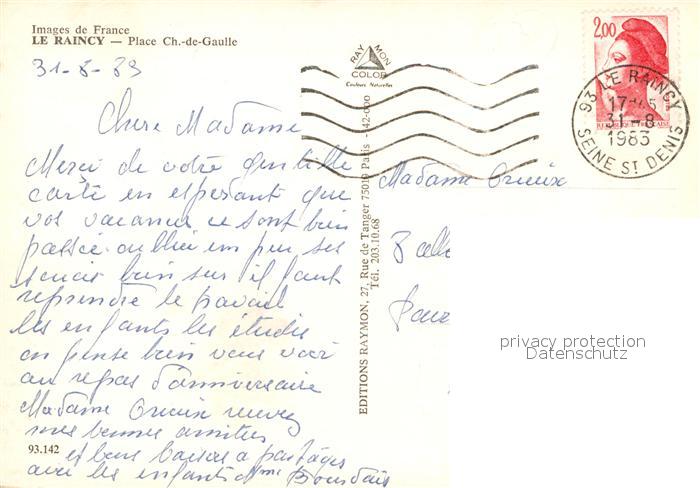 Images de France
LE RAINCY — Place Ch.-de-Gaulle
31-8-83
Chere Madame
Merci de votre gentille
carte en esperant que
vos vacances ce sont bien
passée oublier un peu ses
soucis bien sur il faut
reprendre le travail
les enfants les études
on pense bien vous voir
au repas d'anniversaire
Madame recevez
mes bonnes amities
et bons baisers a partager
avec les enfants Mme Bourdais
93.142
RAYMON
COLOR
Couleurs Naturelles
EDITIONS RAYMON, 27, Rue de Tanger 75019 Paris - 42-000
Tél. 203.10.68
2,00
REPUBLIQUE FRANCAISE
93 LE RAINCY
31-8
1983
SEINE ST DENIS
Madame
privacy protection
Datenschutz